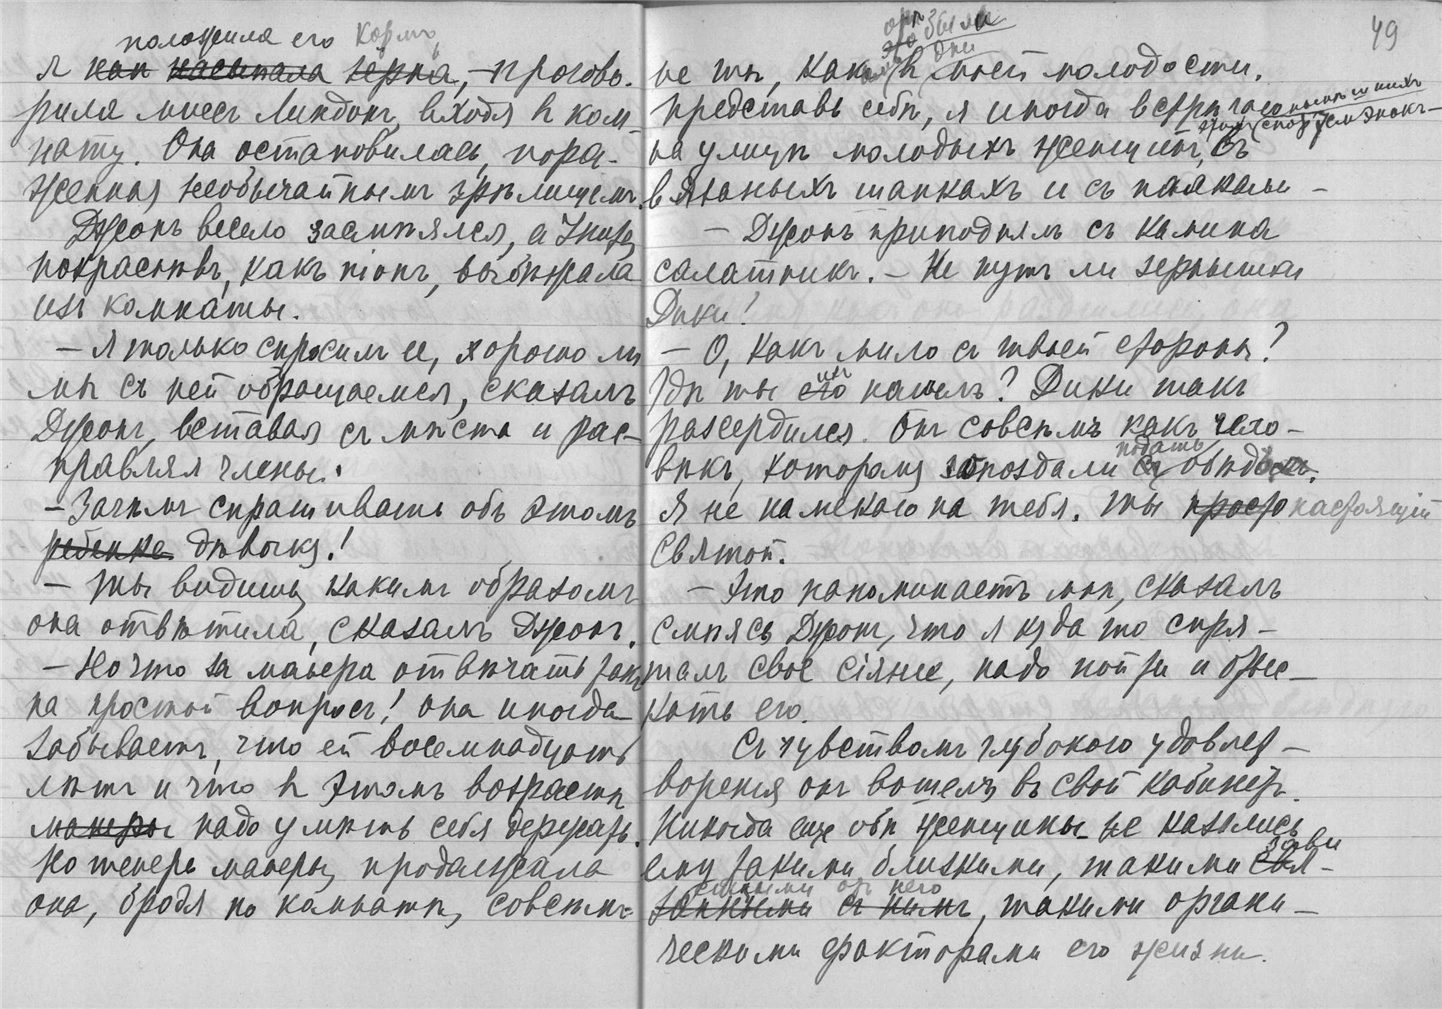 положила его кормъ
я как насыпала зерна, – прогово-
рила миссъ Линдонъ, входя в ком-
нату. Она остановилась, пора-
женная необычайнымъ зрѣлищемъ.
Джонъ весело засмѣялся, а Униса,
покраснѣвъ, какъ піонъ, выбѣжала
изъ комнаты.
– Я только спросилъ ее, хорошо ли
мы съ ней обращаемся, сказалъ
Джонъ, вставая съ мѣста и рас-
правляя члены.
– Зачѣмъ спрашивать объ этомъ
ребенка дѣвочку!
– Ты видишь, какимъ образомъ
она отвѣтила, сказалъ Джонъ.
– Но что за манера отвѣчать такъ
на простой вопросъ! она иногда
забываетъ, что ей восемнадцать
лѣтъ и что в этомъ возрастѣ
манеры надо умѣть себя держать.
Но теперь манеры, продолжала
она, бродя по комнатѣ, совсѣмъ
49
были
дни
не тѣ, какъ в моей молодости.
Представь себѣ, я иногда встрѣчаю
нынѣшнихъ
на улицѣ молодыхъ женщинъ, съ
вязаныхъ шапкахъ и съ палками –
– Джонъ приподнялъ съ камина
салатникъ. – Не тутъ ли зернышки
Дики!
– О, какъ мило съ твоей стороны?
Гдѣ ты это нашелъ? Дики такъ
разсердился. Онъ совсѣмъ какъ чело-
подать
вѣкъ, которому запоздали съ обѣдомъ.
Я не намекаю на тебя. Ты просто настоящій
святой.
– Это напоминаетъ мнѣ, сказалъ
смѣясь Джонъ, что я куда то спря-
талъ свое сіяніе, надо пойти и отыс-
кать его.
Съ чувствомъ глубокого удовлет-
воренія онъ вошелъ въ свой кабинетъ.
Никогда еще обѣ женщины не казались
зави
ему такими близкими, такими свя-
симыми отъ него
занными съ нимъ, такими органи-
ческими факторами его жизни.